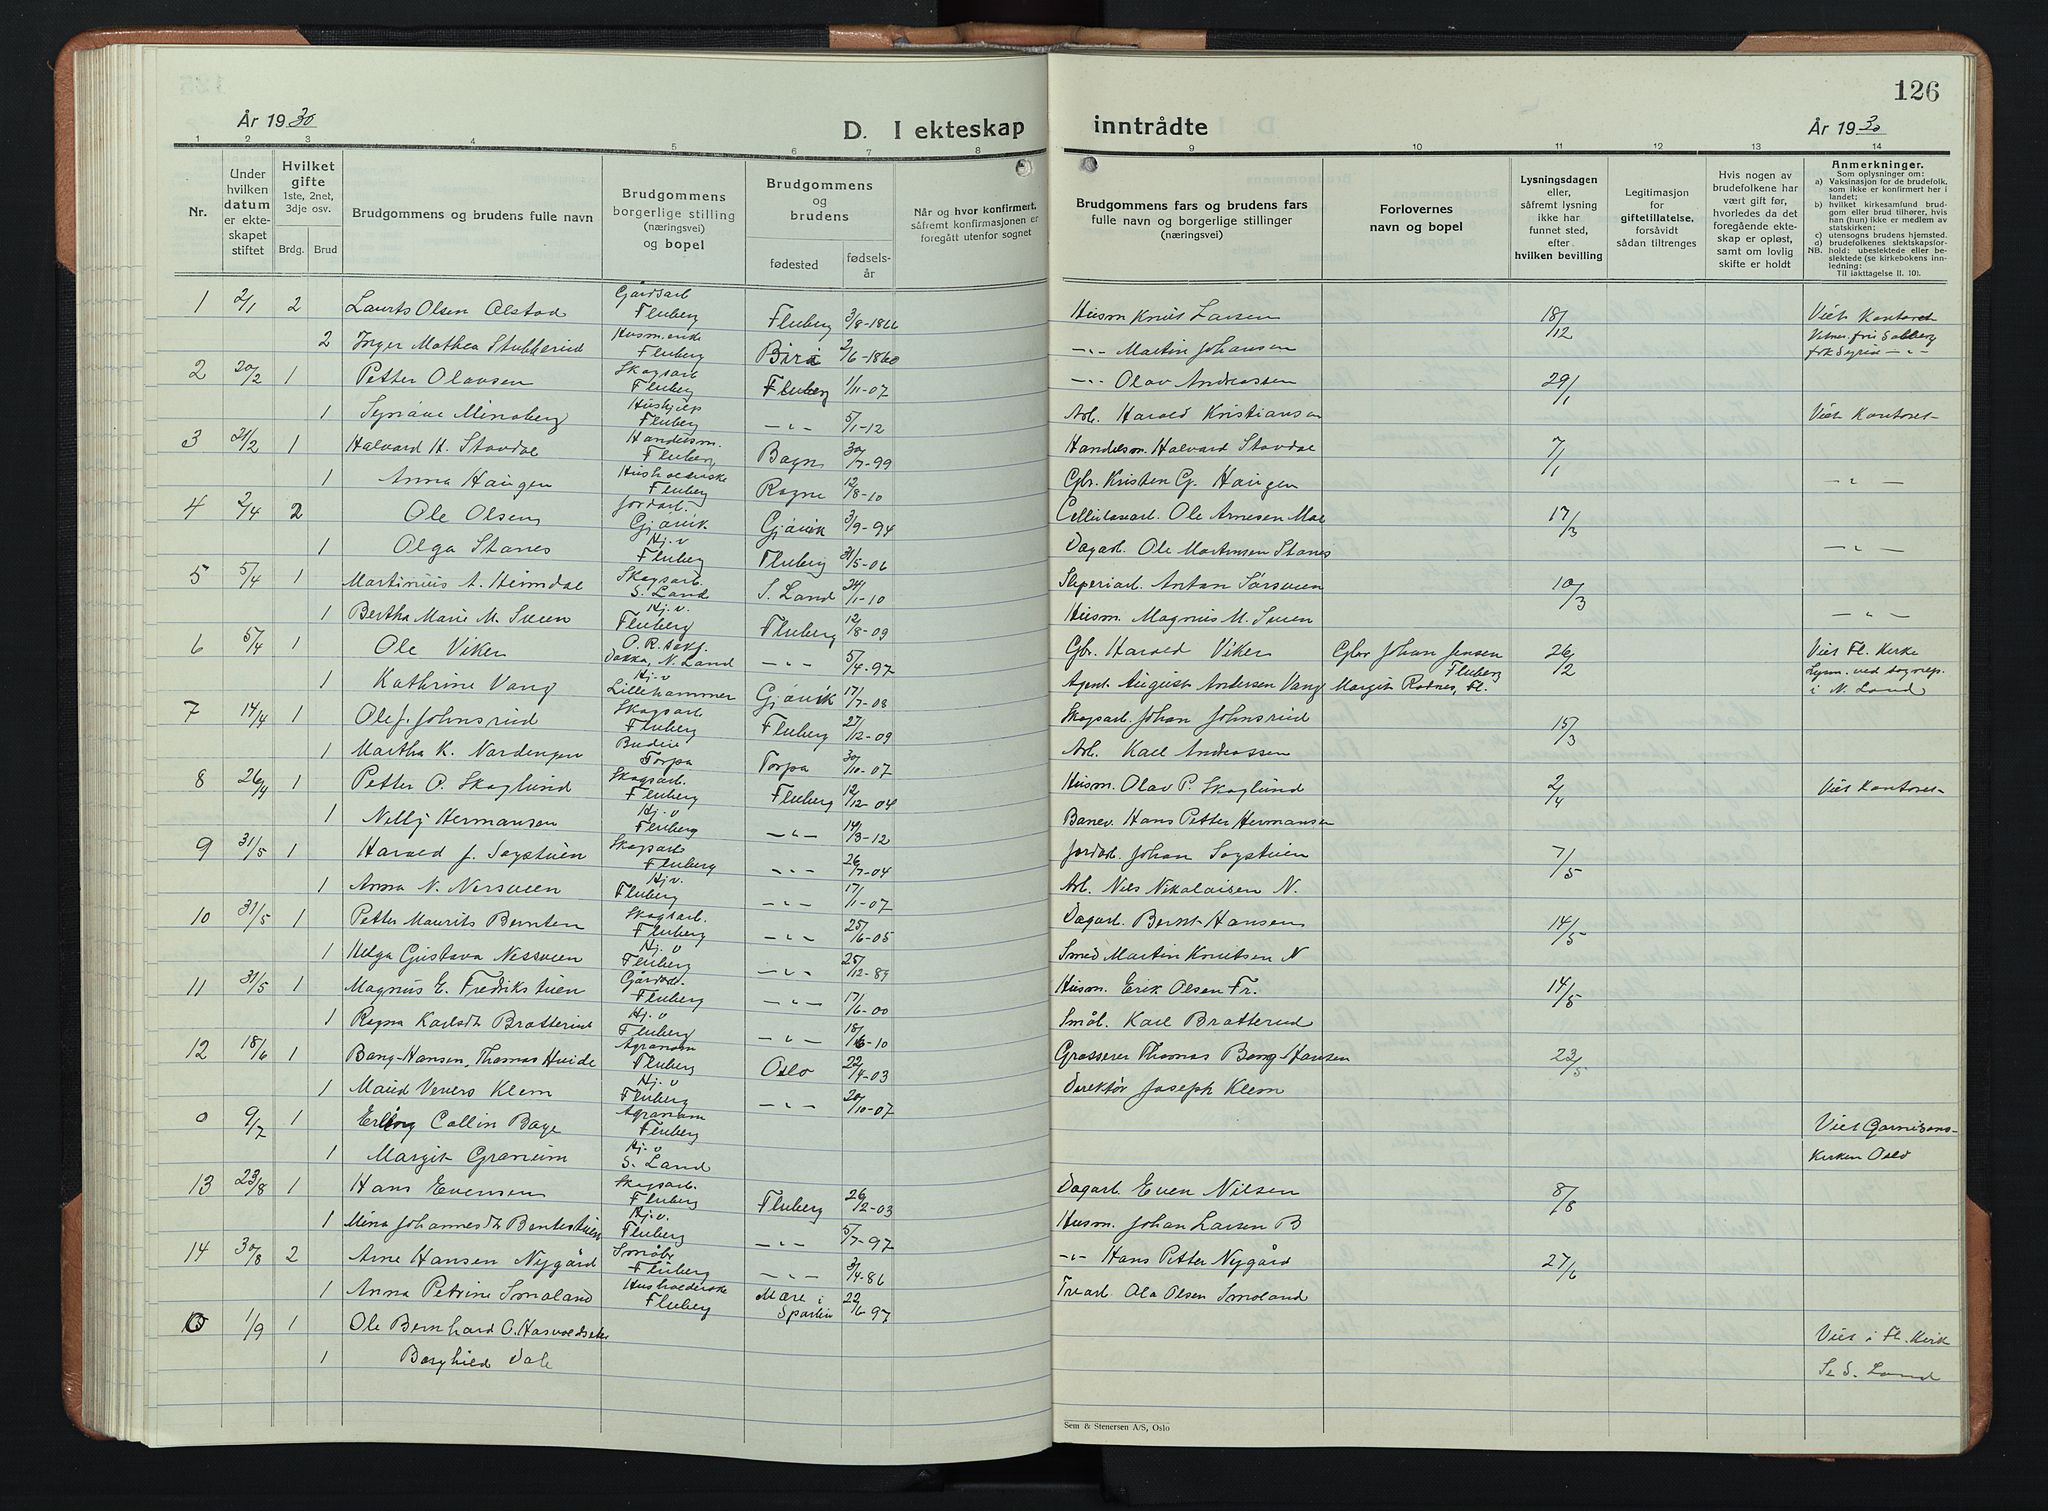 126
År 1930
D. I ekteskap inntrådte
År 1930
1 2 3 4 5 6 7 8 9 10 11 12 13 14
Nr.
Under hvilken datum er ekteskapet stiftet
Hvilket gifte 1ste, 2net, 3dje osv.
Brdg. Brud
Brudgommens og brudens fulle navn
Brudgommens borgerlige stilling (næringsvei) og bopel
Brudgommens og brudens
fødested fødselsår
Når og hvor konfirmert, såfremt konfirmasjonen er foregått utenfor sognet
Brudgommens fars og brudens fars fulle navn og borgerlige stillinger (næringsvei)
Forlovernes navn og bopel
Lysningsdagen eller, såfremt lysning ikke har funnet sted, efter hvilken bevilling
Legitimasjon for giftetillatelse, forsåvidt sådan tiltrenges
Hvis nogen av brudefolkene har vært gift før, hvorledes da det foregående ekteskap er opløst, samt om lovlig skifte er holdt
Anmerkninger.
Som oplysninger om:
a) Vaksinasjon for de brudefolk, som ikke er konfirmert her i landet;
b) hvilket kirkesamfund brudgom eller brud tilhører, hvis han (hun) ikke er medlem av statskirken;
c) utensogns brudens hjemsted.
d) brudefolkenes slektskapsforhold: ubeslektede eller beslektede (se kirkebokens innledning:
NB. Til iakttagelse II. 10).
1 2/1 2 Laurts Olsen Alstad Gårdsarb Fluberg Fluberg 3/8-1866 Husm Knut Larsen 18/12 Viet Kontoret
2 Inger Mathea Stubberud Husm.enke Fluberg Biri 2/6-1860 -"- Martin Johansen
2 20/2 1 Petter Olavsen Skogsarb Fluberg Fluberg 1/11-07 -"- Olav Andreassen 29/1
1 Synøve Minaberg Hushjelp Fluberg -"- 5/1-12 Arb. Harald Kristiansen Viet Kontoret
3 21/2 1 Halvard H. Stavdal Handelsm. Fluberg Bagn 30/7-99 Handelsm. Halvard Stavdal 7/1
1 Anna Haugen Husholderske Fluberg Rogne 12/8-10 Gbr. Kristen G. Haugen -"-
4 2/4 2 Ole Olsen Jordarb. Gjøvik Gjøvik 3/9-94 Cellulosearb. Ole Arnesen Moe 17/3
1 Olga Stanes Hj.v Fluberg Fluberg 31/5-06 Dagarb. Ole Martinsen Stanes -"-
5 5/4 1 Martinius A. Heimdal Skogsarb. S. Land S. Land 24/1-10 Sliperiarb. Anton Sørsveen 10/3
1 Bertha Marie M. Sveen Hj.v. Fluberg Fluberg 12/8-09 Husm. Magnus M. Sveen -"-
6 5/4 1 Ole Viker Dokka, N. Land -"- 5/4-97 Gbr. Harald Viker Gbr Johan Jensen Fluberg 26/2 Viet Fl. Kirke
1 Kathrine Vang Hj.v Lillehammer Gjøvik 17/7-08 Agent August Andersen Vang Margit Rødnes, Fl. Lysn. ved sognep. i N. Land
7 14/4 1 Ole J. Johnsrud Skogsarb Fluberg Fluberg 27/12-09 Skogsarb. Johan Johnsrud 15/3
1 Martha K. Nordengen Budeie Torpa Torpa 30/10-07 Arb. Karl Andreassen
8 26/4 1 Petter O. Skoglund Skogsarb. Fluberg Fluberg 12/12-04 Husm. Olav P. Skoglund 2/4 Viet Kontoret
1 Nelly Hermansen Hj.v Fluberg -"- 14/3-12 Banev. Hans Petter Hermansen
9 31/5 1 Harald J. Sogstuen Skogsarb Fluberg -"- 26/7-04 Jordarb. Johan Sogstuen 7/5
1 Anna N. Nersveen Hj.v. Fluberg -"- 17/1-07 Arb. Nils Nikolaisen N.
10 31/5 1 Petter Maurits Bernten Skogsarb. Fluberg -"- 25/6-05 Dagarb. Bernt Hansen 14/5
1 Helga Gustava Nessveen Hj.v Fluberg -"- 25/12-89 Smed Martin Knutsen N
11 31/5 1 Magnus E. Fredrikstuen Gårdarb. Fluberg -"- 17/6-00 Husm. Erik Olsen Fr. 14/5
1 Ragna Karlsdt Bratterud Hj.v Fluberg -"- 18/6-10 Småb. Karl Bratterud
12 18/6 1 Bang-Hansen, Thomas Hvide Agronom Fluberg Oslo 22/4-03 Grosserer Thomas Bang-Hansen 23/5
1 Maud Veners Klem Hj.v Fluberg -"- 20/10-07 Direktør Joseph Klem
0 9/7 1 Erling Collin Baye Agronom Fluberg Viet Garnisons-
1 Margit Granum Hj.v S. Land Kirken Oslo
13 23/8 1 Hans Evensen Skogsarb. Fluberg Fluberg 26/2-03 Dagarb. Even Nilsen 8/8
1 Mina Johannesdt Bentestuen Hj.v. Fluberg -"- 5/7-97 Husm. Johan Larsen B
14 30/8 2 Arne Hansen Nygård Småbr Fluberg -"- 3/4-86 -"- Hans Petter Nygård 27/6
1 Anna Petrine Smoland Husholderske Fluberg Mære i Sparbu 22/6-97 Trearb. Ola Olsen Smoland
0 1/9 1 Ole Bernhard O. Viet i Fl. Kirk
1 Borghild Dale Se S. Land
Sem & Stenersen A/S, Oslo